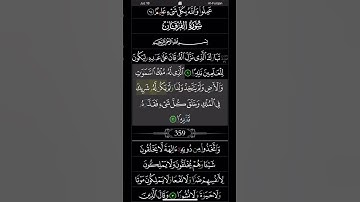 Juz 18 Al-Furqan
عَمِلُوا۟ وَٱللَّهُ بِكُلِّ شَىْءٍ عَلِيمٌۢ ٦٤
سُورَةُ الفُرْقَانِ
بِسْمِ ٱللَّهِ ٱلرَّحْمَٰنِ ٱلرَّحِيمِ
تَبَارَكَ ٱلَّذِى نَزَّلَ ٱلْفُرْقَانَ عَلَىٰ عَبْدِهِۦ لِيَكُونَ
لِلْعَٰلَمِينَ نَذِيرًا ١ ٱلَّذِى لَهُۥ مُلْكُ ٱلسَّمَٰوَٰتِ
وَٱلْأَرْضِ وَلَمْ يَتَّخِذْ وَلَدًا وَلَمْ يَكُن لَّهُۥ شَرِيكٌ
فِى ٱلْمُلْكِ وَخَلَقَ كُلَّ شَىْءٍ فَقَدَّرَهُۥ
تَقْدِيرًا ٢
359
وَٱتَّخَذُوا۟ مِن دُونِهِۦٓ ءَالِهَةً لَّا يَخْلُقُونَ
شَيْـًٔا وَهُمْ يُخْلَقُونَ وَلَا يَمْلِكُونَ
لِأَنفُسِهِمْ ضَرًّا وَلَا نَفْعًا وَلَا يَمْلِكُونَ مَوْتًا
وَلَا حَيَوٰةً وَلَا نُشُورًا ٣ وَقَالَ ٱلَّذِينَ